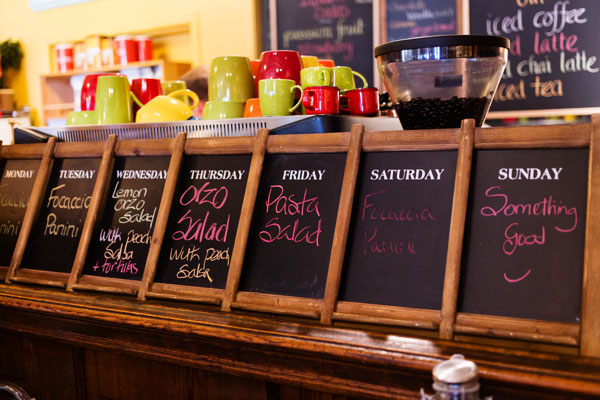 passion fruit
iced coffee
iced latte
iced chai latte
iced tea
MONDAY
Focaccia
Panini
TUESDAY
Focaccia
Panini
WEDNESDAY
Lemon
orzo
salad
with peach
salsa
+ tortillas
THURSDAY
orzo
Salad
with peach
salsa
FRIDAY
Pasta
Salad
SATURDAY
Focaccia
Panini
SUNDAY
Something
good